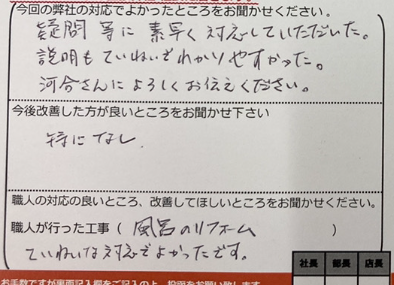 今回の弊社の対応でよかったところをお聞かせください。
疑問等に素早く対応していただいた。
説明もていねいでわかりやすかった。
河合さんによろしくお伝えください。
今後改善した方が良いところをお聞かせ下さい
特になし
職人の対応の良いところ、改善してほしいところをお聞かせください。
職人が行った工事(風呂のリフォーム)
ていねいな対応でよかったです。
社長 部長 店長
お手数ですが裏面記入欄をご記入の上、投函をお願い致します